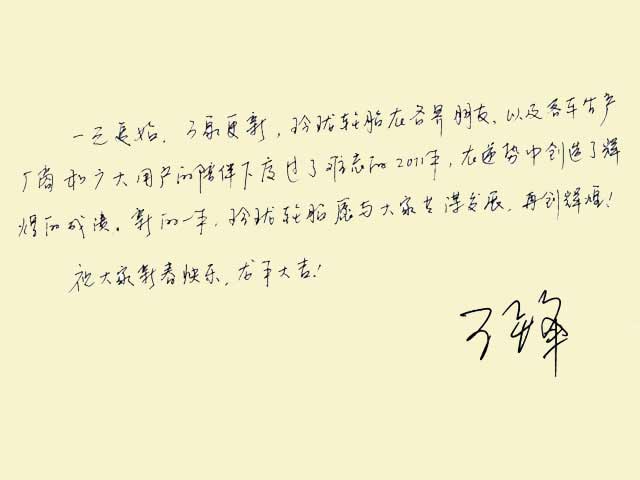 一元复始,万象更新,玲珑轮胎在各界朋友、以及客车生产
厂商和广大用户的陪伴下度过了难忘的2011年,在逆势中创造了辉
煌的成绩。新的一年,玲珑轮胎愿与大家共谋发展,再创辉煌!
祝大家新春快乐,龙年大吉!
锋